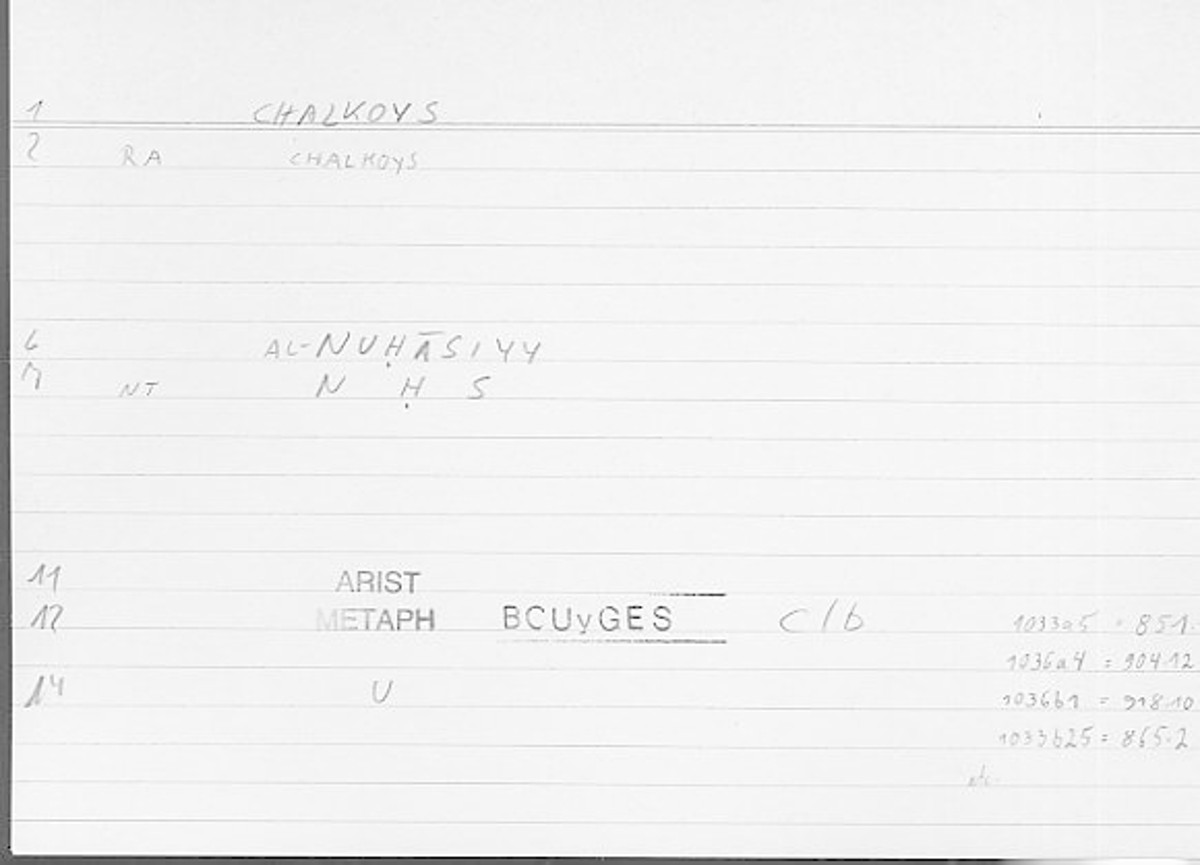 1 CHALKOYS
2 RA CHALKOYS
6 AL-NUḤĀSIYY
7 NT N Ḥ S
11 ARIST
12 METAPH BCUyGES C/b 1033a5 = 851.
1036a4 = 904.12
14 U 1036b1 = 918.10
1033b25 = 865.2
etc.